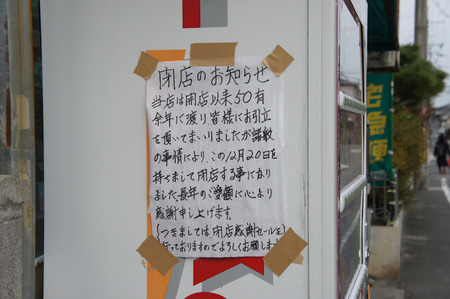 閉店のお知らせ
当店は閉店以来50有
余年に渡り皆様にお引立
を頂いてまいりましたが諸般
の事情により、この12月20日を
持ちまして閉店する事になり
ました。長年のご愛顧に心より
感謝申し上げます。
つきましては閉店感謝セールを
行っておりますのでよろしくお願
宅急便